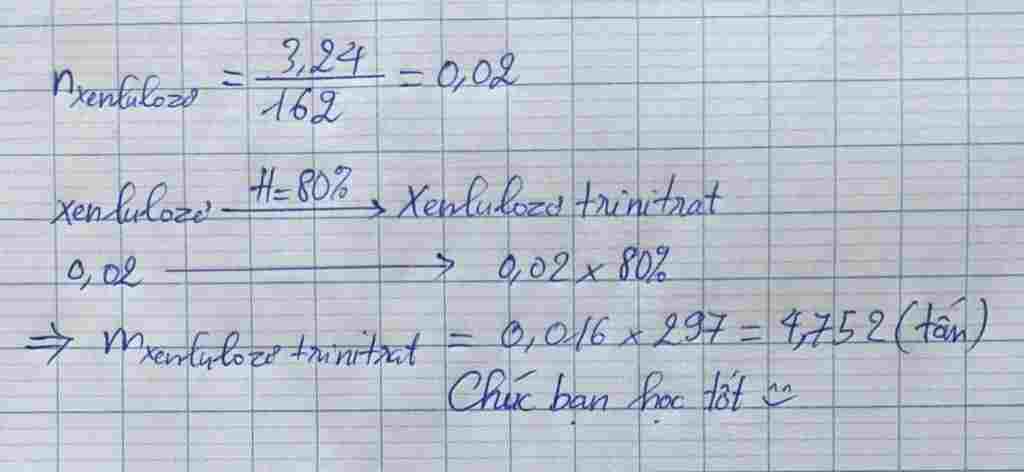 n xenlulozơ = 3,24 / 162 = 0,02
xenlulozơ H=80% → Xenlulozơ trinitrat
0,02 → 0,02 × 80%
⇒ m xenlulozơ trinitrat = 0,016 × 297 = 4,752 (tấn)
Chúc bạn học tốt